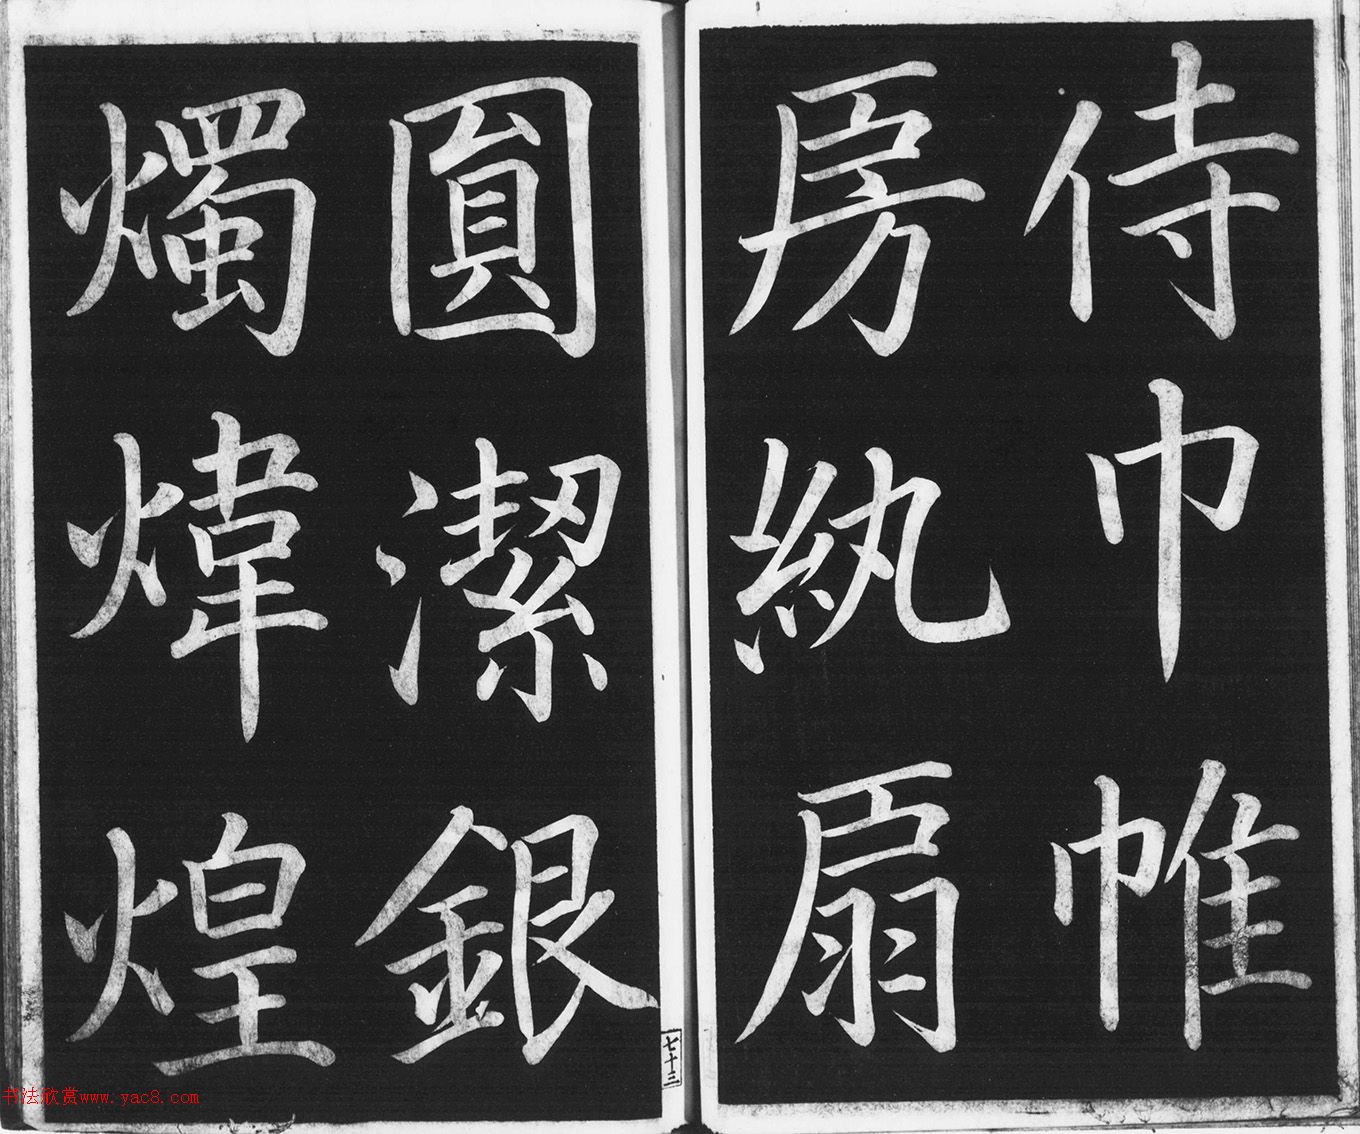 侍巾帷
房紈扇
圓潔銀
燭煒煌
七十三
书法欣赏www.yac8.com